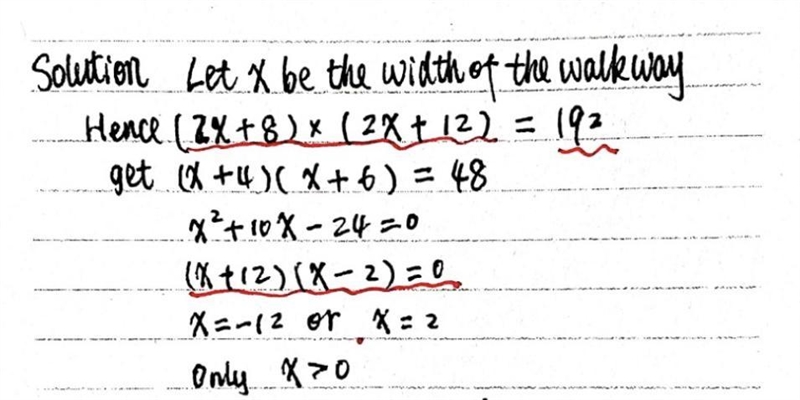 Solution Let x be the width of the walkway
Hence (2x+8)×(2x+12) = 192
get (x+4)(x+6) = 48
x²+10x-24=0
(x+12)(x-2)=0
x=-12 or x=2
Only x>0